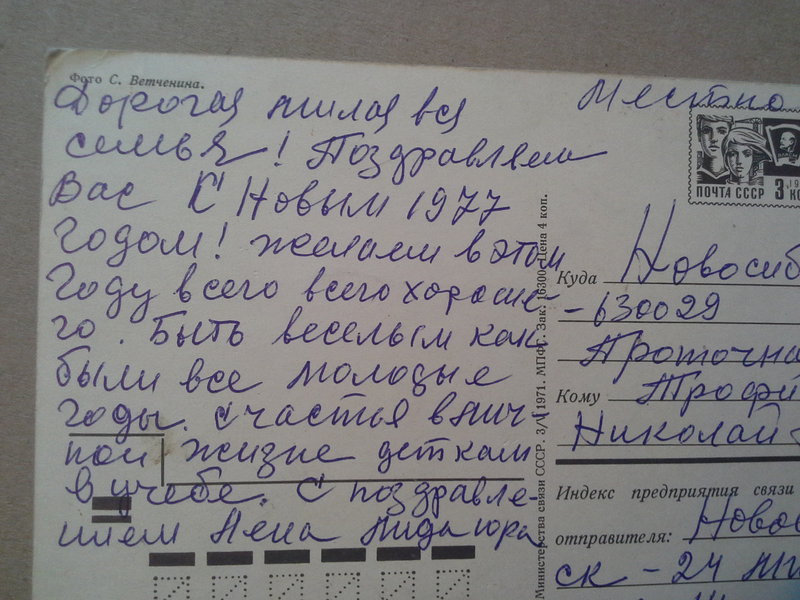 Фото С. Ветченина.
Дорогая милая вся
семья! Поздравляем
Вас С Новым 1977
Годом! желаем в этом
Году всего всего хороше-
го. Быть веселым как
были все молодые
годы. счастья в лич-
ной жизне деткам
в учебе. С поздравле-
нием
Министерства связи СССР. 3/V 1971. МПФС. Зак. 16300. Цена 4 коп.
Местно
ПОЧТА СССР 3
Куда Новосиб
-630029
Проточна
Кому Трофи
Николай
Индекс предприятия связи
отправителя: Ново
ск - 24